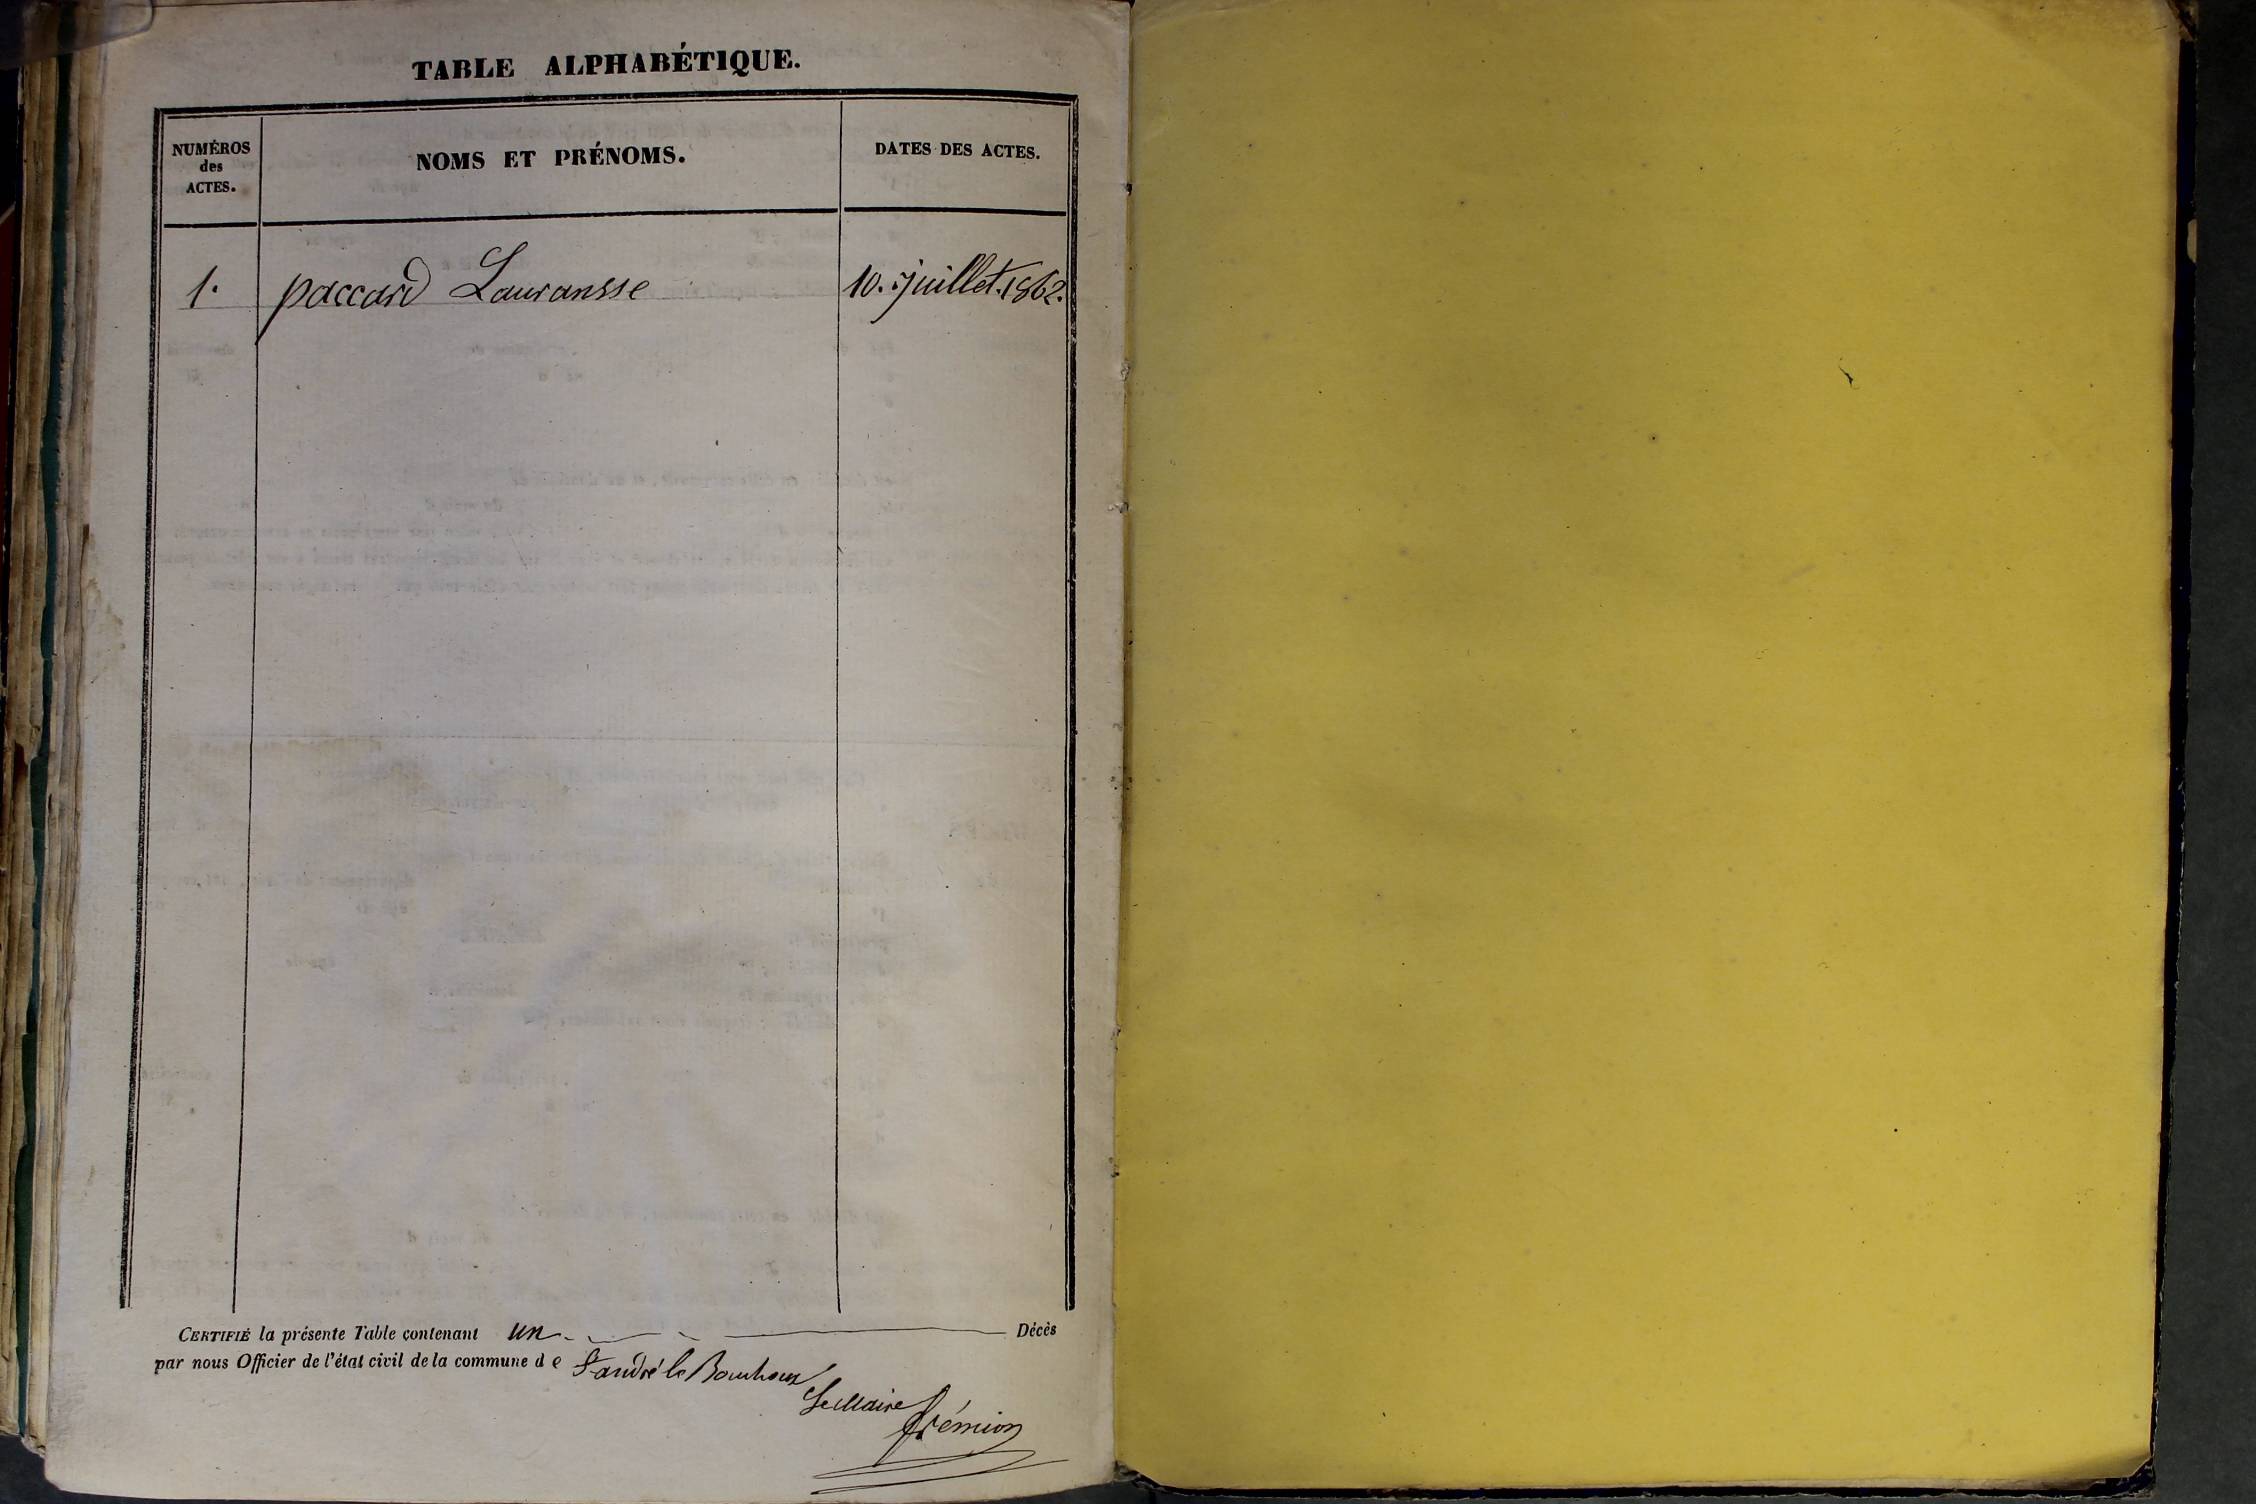 TABLE ALPHABÉTIQUE.
NUMÉROS
des
ACTES.
NOMS ET PRÉNOMS.
DATES DES ACTES.
1. paccard Lauransse 10. juillet. 1862.
CERTIFIÉ la présente Table contenant un Décès
par nous Officier de l'état civil de la commune de St andré le Bouchoux
Le Maire
Frémion